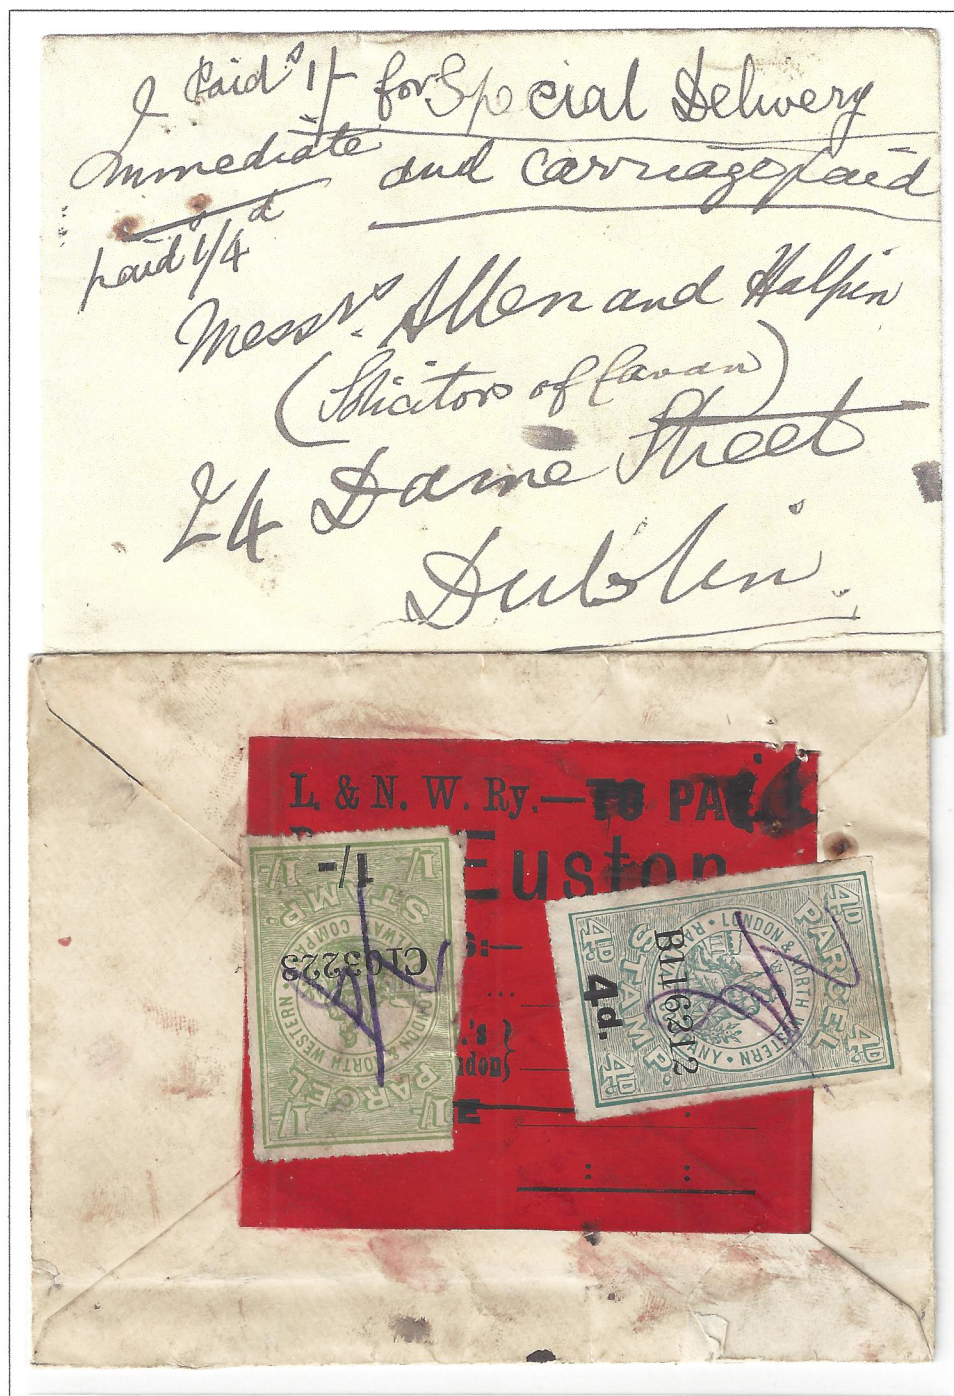 I Paid s 1/- for Special Delivery
Immediate and carriage paid
paid s 1/4 d
Messrs. Allen and Halpin
(Solicitors of Cavan)
24 Dame Street
Dublin.
L. & N. W. Ry.—TO PAY
Euston
S:—
...
.'s }
don}
E
: :
1/- PARCEL 1/-
LONDON & NORTH WESTERN RAILWAY COMPANY
C103223
1/-
1/- STAMP. 1/-
4D. PARCEL 4D.
LONDON & NORTH WESTERN RAILWAY COMPANY
BL16312
4d.
4D. STAMP. 4D.